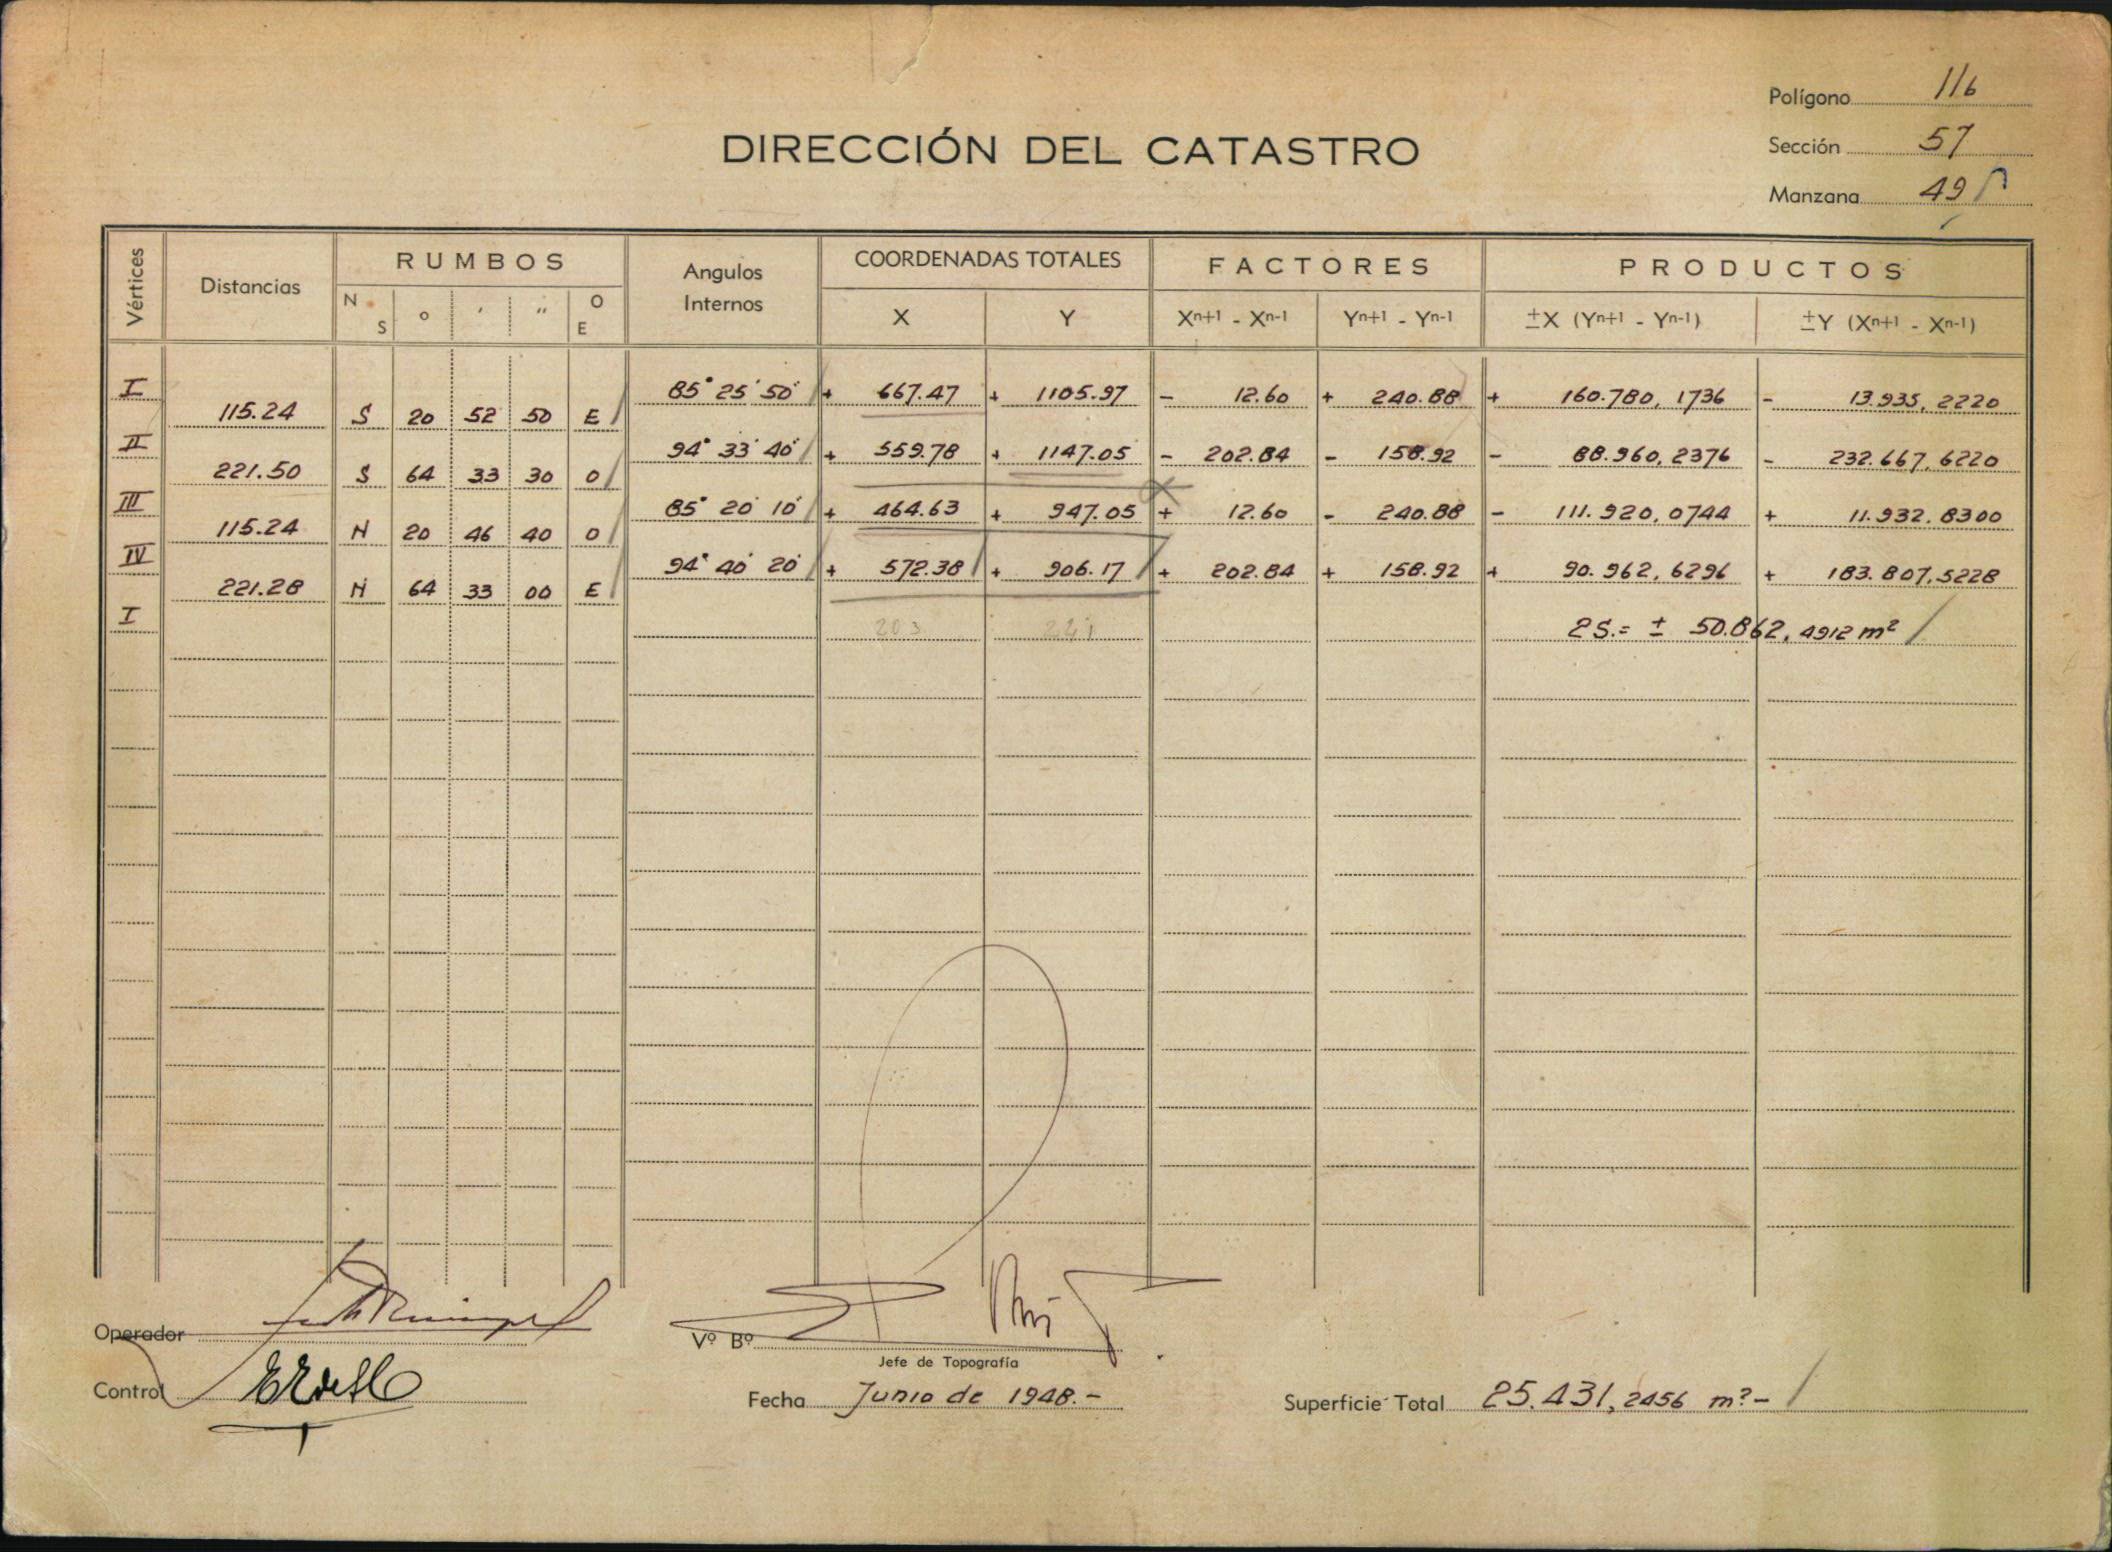 Polígono 116
DIRECCIÓN DEL CATASTRO
Sección 57
Manzana 49
Vértices Distancias RUMBOS Angulos Internos COORDENADAS TOTALES FACTORES PRODUCTOS
N S o ' " O E X Y Xn+1 - Xn-1 Yn+1 - Yn-1 ±X (Yn+1 - Yn-1) ±Y (Xn+1 - Xn-1)
I 85° 25' 50" + 667.47 + 1105.97 - 12.60 + 240.88 + 160.780,1736 - 13.935,2220
115.24 S 20 52 50 E
II 94° 33' 40" + 559.78 + 1147.05 - 202.84 - 158.92 - 88.960,2376 - 232.667,6220
221.50 S 64 33 30 O
III 85° 20' 10" + 464.63 + 947.05 + 12.60 - 240.88 - 111.920,0744 + 11.932,8300
115.24 N 20 46 40 O
IV 94° 40' 20" + 572.38 + 906.17 + 202.84 + 158.92 + 90.962,6296 + 183.807,5228
221.28 N 64 33 00 E
I 203 221 2S.= ± 50.862,4912 m²
Operador
Vº Bº
Jefe de Topografía
Control
Fecha Junio de 1948.-
Superficie Total 25.431,2456 m².-